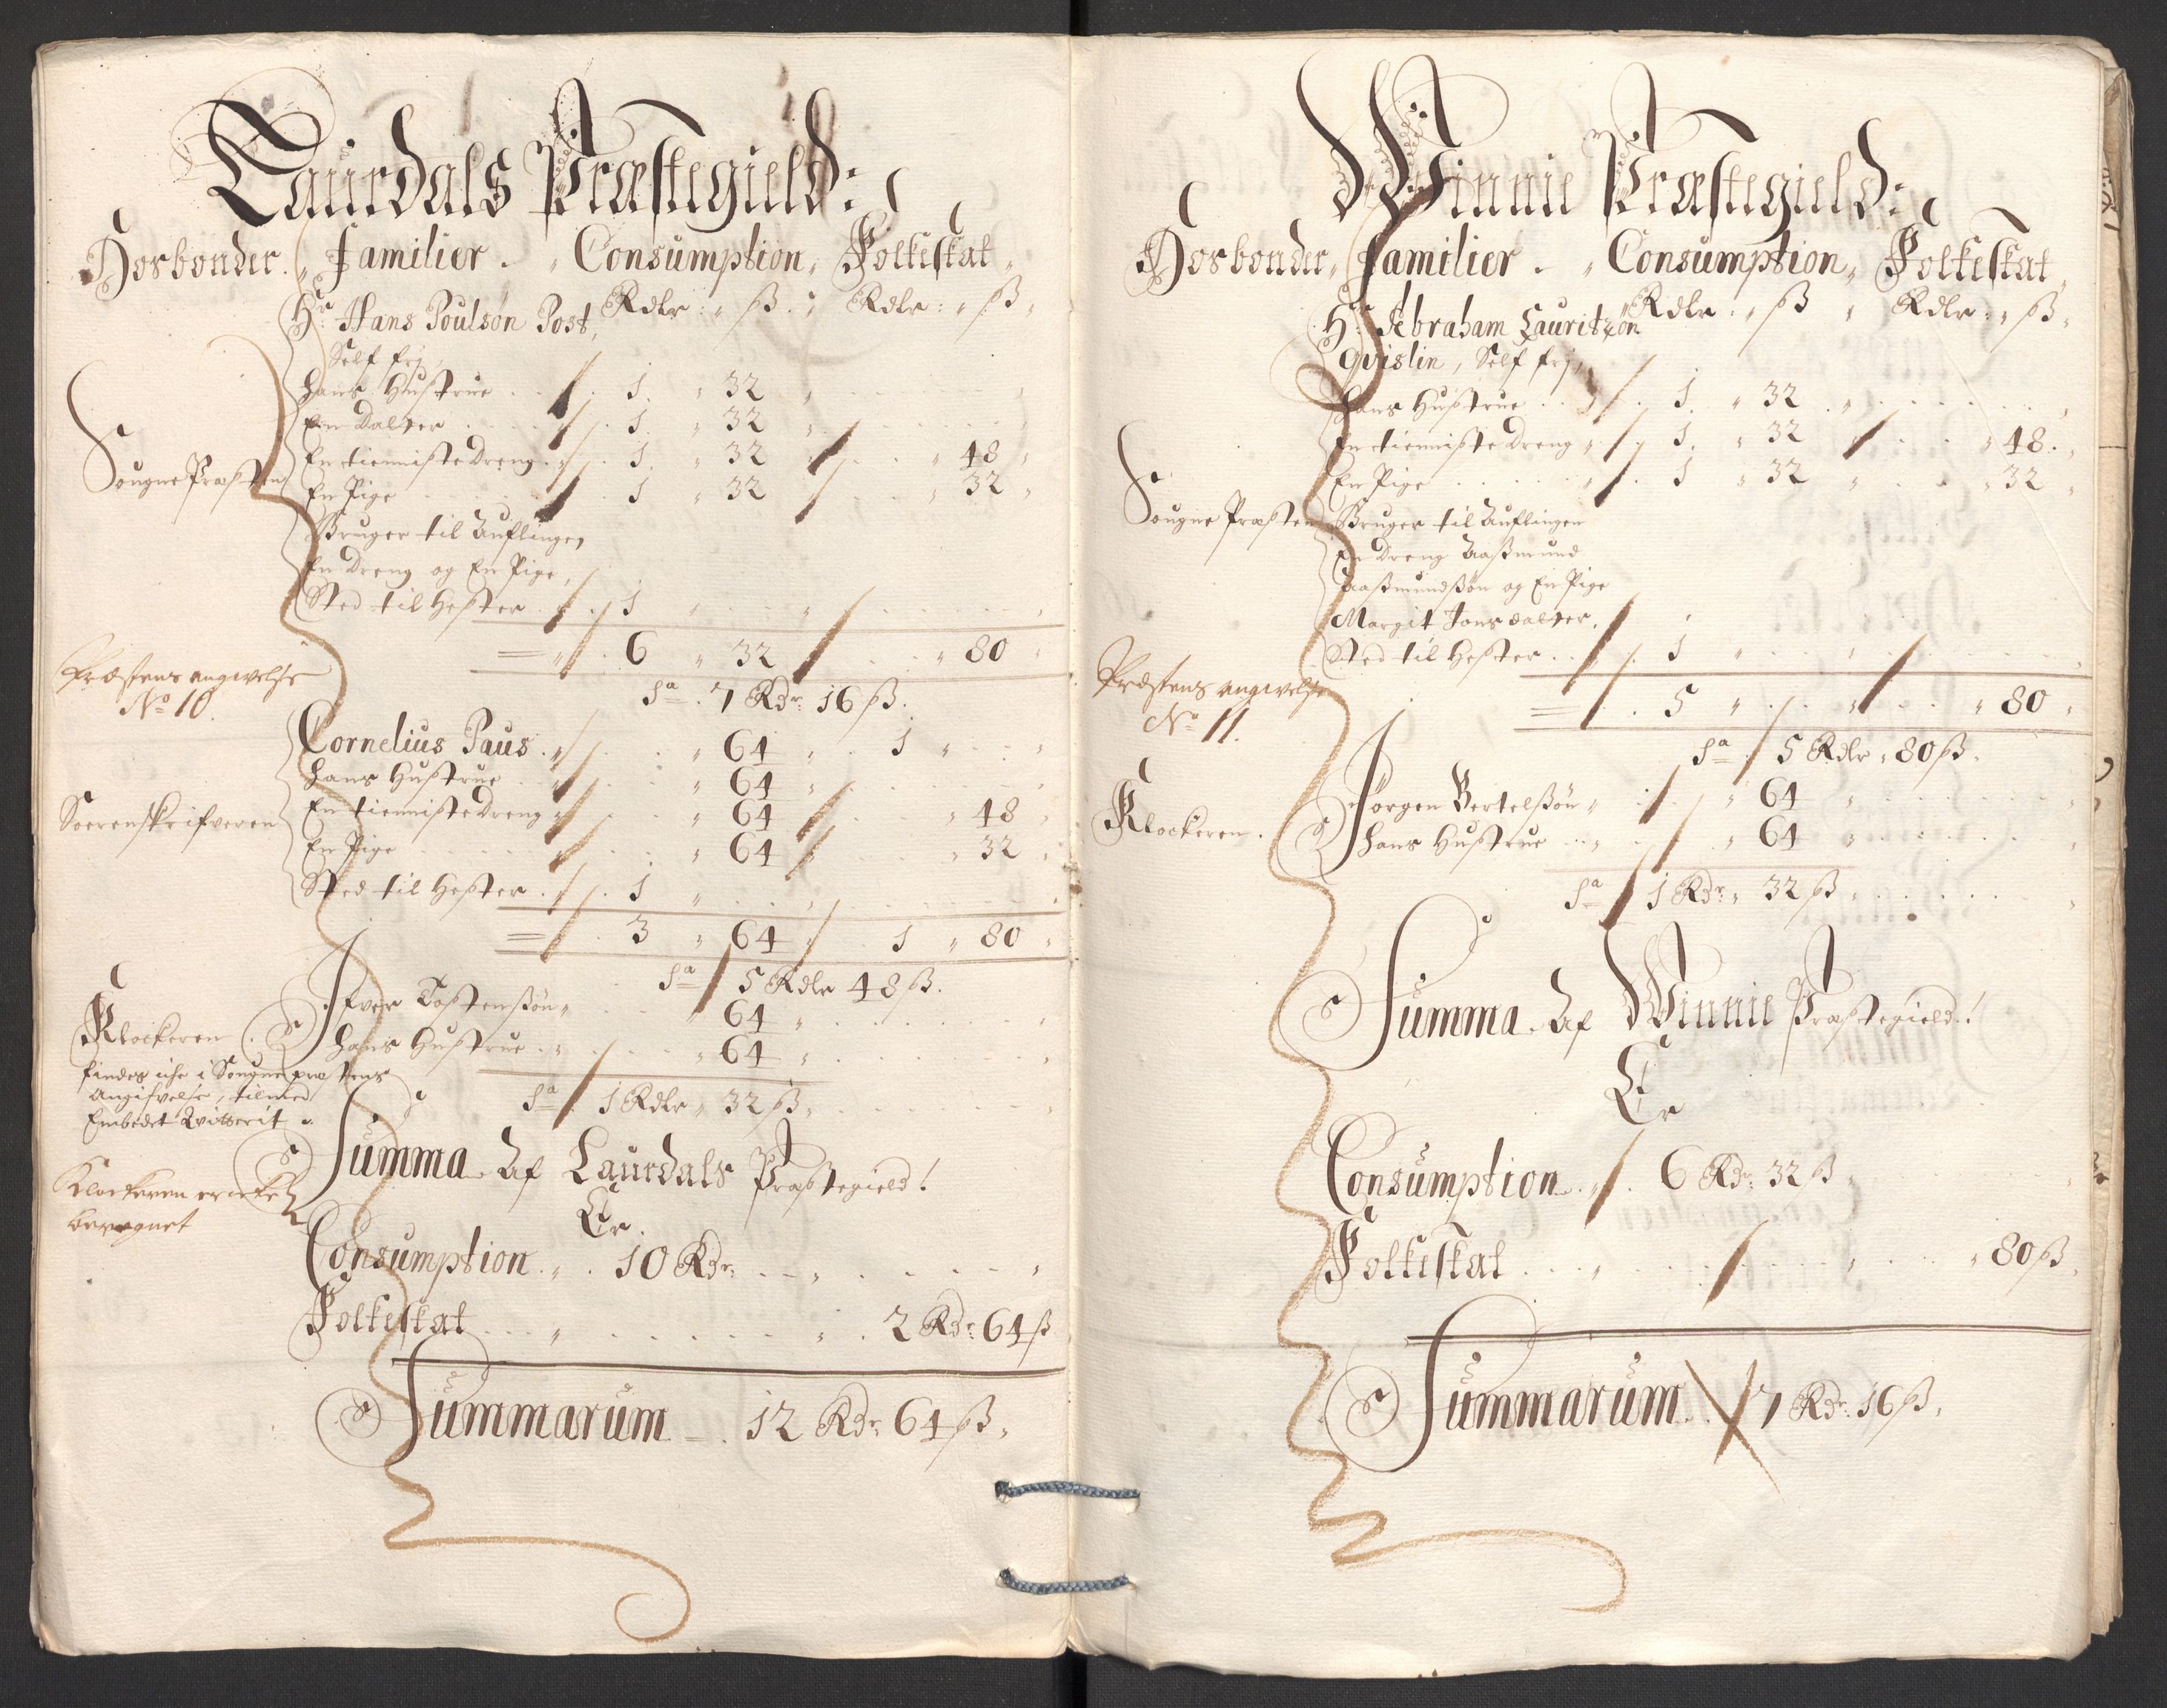 Laurdals Præstegield:
Hosbonder. Familier. Consumption, Folkeskat,
Rdlr: ß. Rdlr: ß.
Hr: Hans Poulsøn Post,
Self frj,
Hans Hustrue . . 1. 32
En Datter . . . 1. 32
Sougne Præsten
En tienniste Dreng . . 1. 32 . . 48
En Pige . . . 1 32 . . 32
Bruger til Auflingen
En Dreng og En Pige,
Sted til Hester . . 1
6 32 80
Sa 7 Rdr: 16 ß.
Præstens angivelse
No 10.
Cornelius Paus . . 64 . 1
Hans Hustrue . . 64
Sorenskrifveren
En tienniste Dreng . . 64 . . 48
En Pige . . . 64 . . 32
Sted til Hester . . 1
3 64 1 80
Sa 5 Rdlr 48 ß.
Klockeren.
Ifver Tostensøn . . 64
Hans Hustrue . . 64
findes iche i Sougne præstens
Angifvelse, tilmed
Embedet Qvitterit
Sa 1 Rdlr, 32 ß,
Summa Af Laurdals Præstegield!
Er.
Klockeren er icke
beregnet
Consumption . . 10 Rdr:
Folkeskat . . . 2 Rdr: 64 ß
Summarum . 12 Rdr: 64 ß,
Winnie Præstegield:
Hosbonder, Familier. Consumption, Folkeskat,
Rdlr: ß Rdlr: ß,
Hr: Abraham Lauritzøn
Qvislin, Self frj,
Hans Hustrue . . 1. 32
En tienniste Dreng . 1. 32 . . 48.
En Pige . . . 1 32 . . 32
Sougne Præsten
Bruger til Auflingen
En Dreng Aaßmund
Aaßmundßøn og En Pige
Margit Jons datter,
Sted til Hester . . 1
5 80
Sa 5 Rdlr, 80 ß.
Præstens angivelse
No 11.
Klockeren.
Jørgen Bertelßøn . . 64
Hans Hustrue . . 64
Sa 1 Rdr: 32 ß
Summa Af Winnie Præstegield!
Er
Consumption . . 6 Rdr: 32 ß
Folkeskat . . . 80 ß,
Summarum . . 7 Rdr: 16 ß,